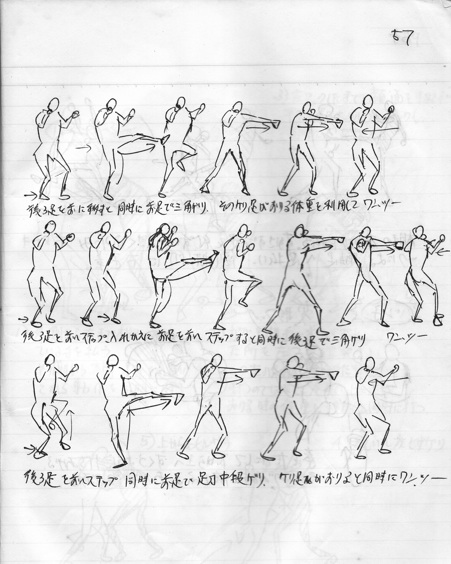 57
後ろ足を前に移すと同時に前足で三角ゲリ、そのケリ足がおりる体重を利用してワンツー
後ろ足を前ステップ入れかえに前足を前へステップすると同時に後ろ足で三角ゲリ ワンツー
後ろ足を前ステップ 同時に前足で足刀中段ゲリ、ケリ足がおりると同時にワンツー